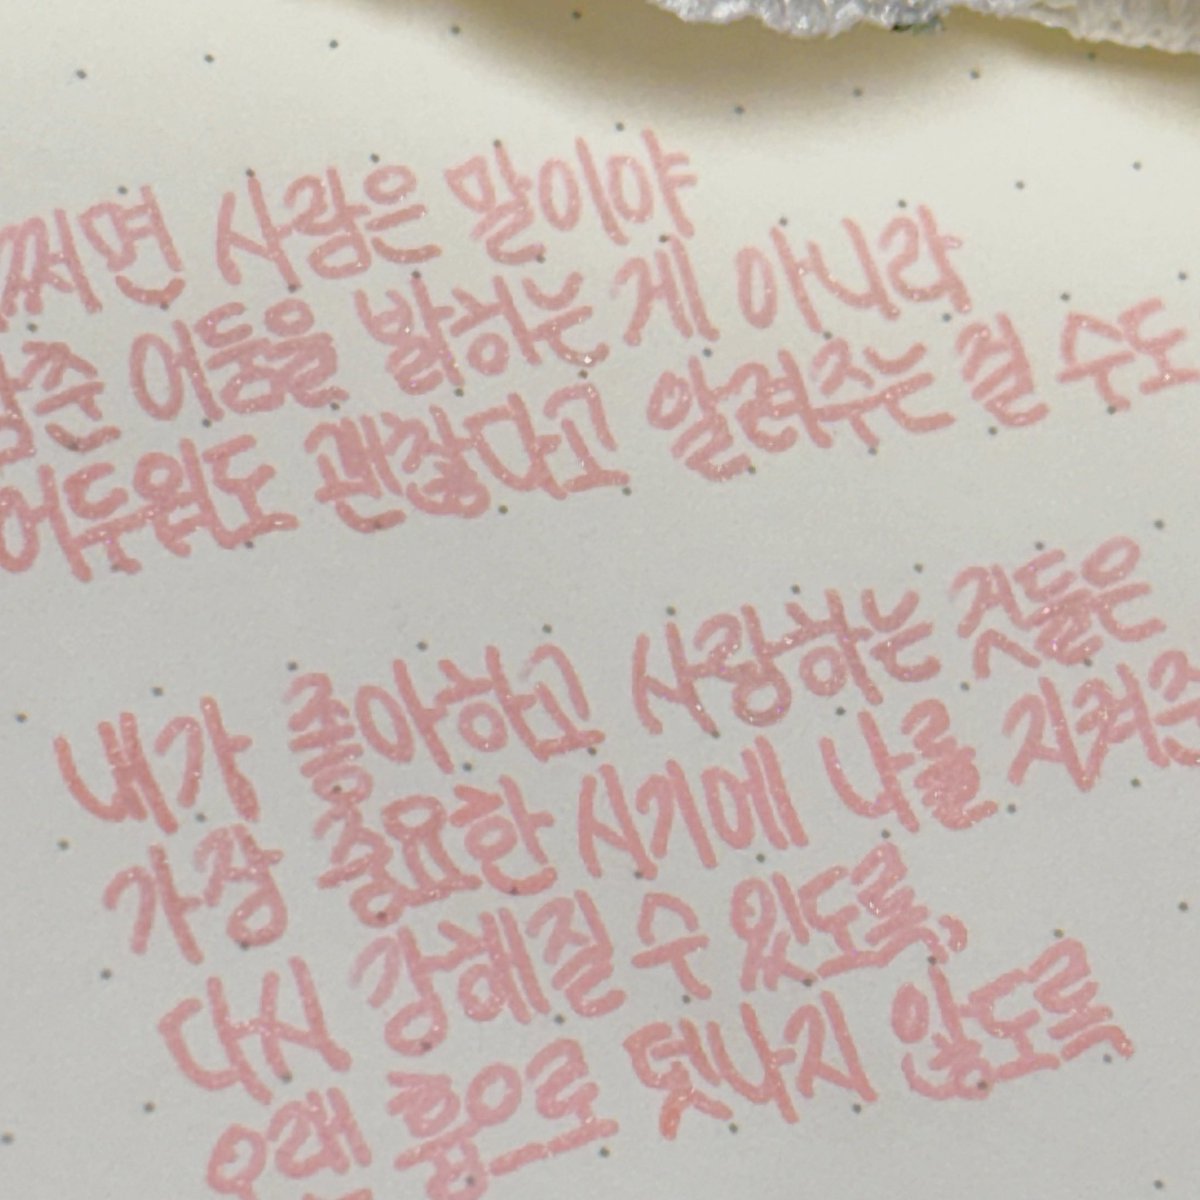 쩌면 사람은 말이야
춘 어둠을 밝히는 게 아니라
어두워도 괜찮다고 알려주는 걸 수도
내가 좋아하고 사랑하는 것들은
가장 중요한 시기에 나를 지켜준
다시 강해질 수 있도록,
오랜 흉으로 덧나지 않도록